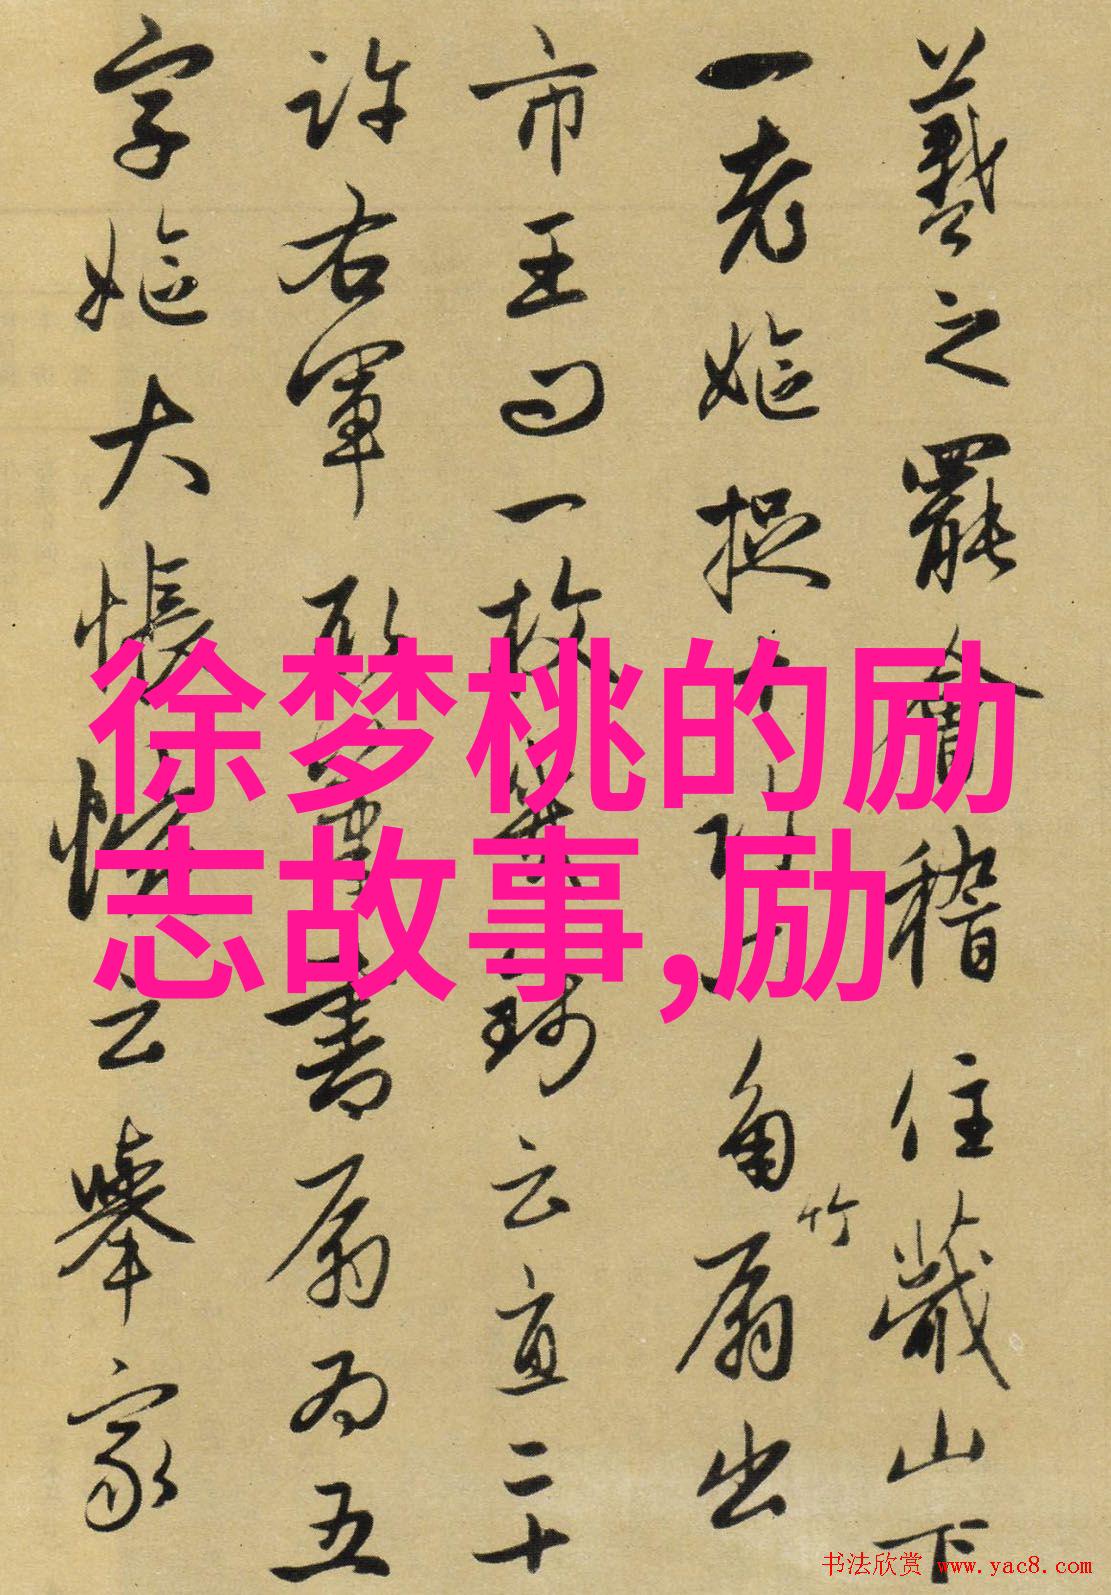 羲之罷會稽住蕺山下
一老嫗捉角竹扇出
市王問一枚錢云直二十
許右軍書扇為五
字嫗大悵惋云舉家
徐梦桃的励
志故事,励
书法欣赏 www.yac8.com